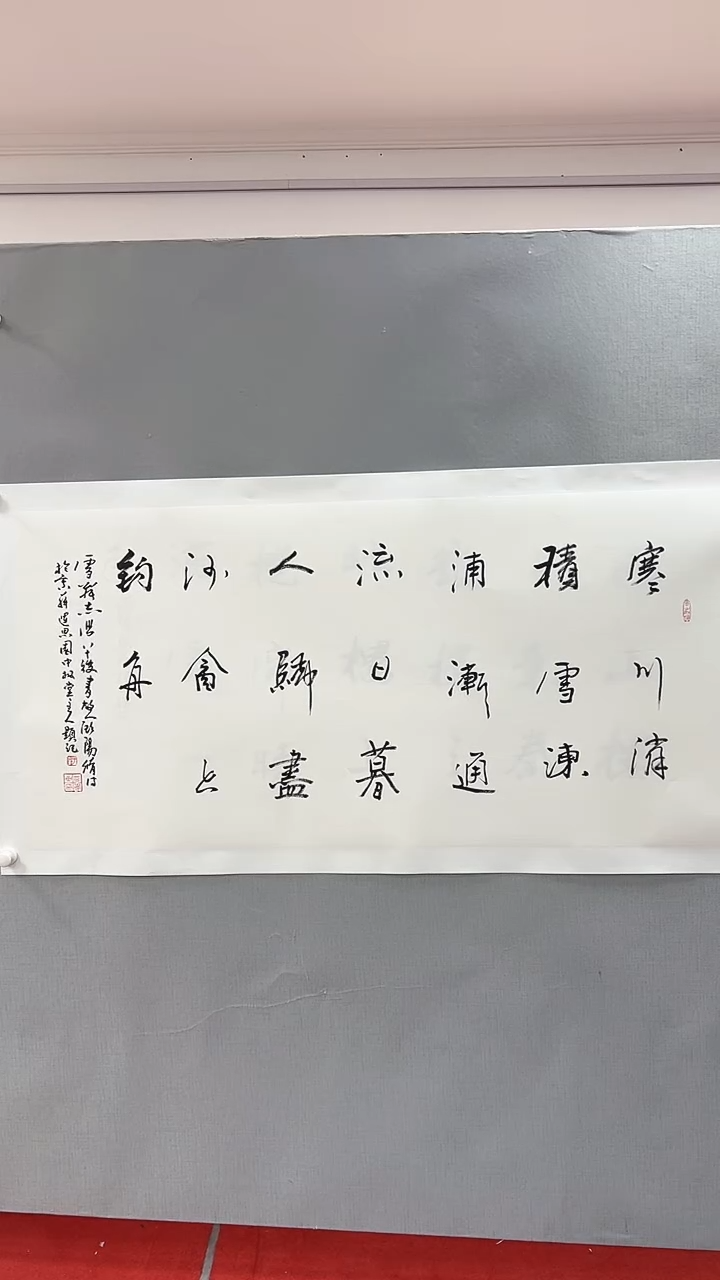 寒川消
積雪凍
浦漸通
流日暮
人歸盡
沙禽上
釣舟
雪 書 歐陽脩詩
於京 園中 堂主人題記